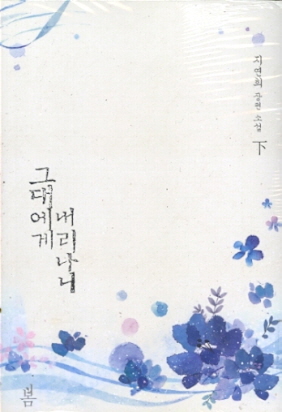 지연희 장편 소설 下
그대에게
내리나니
봄